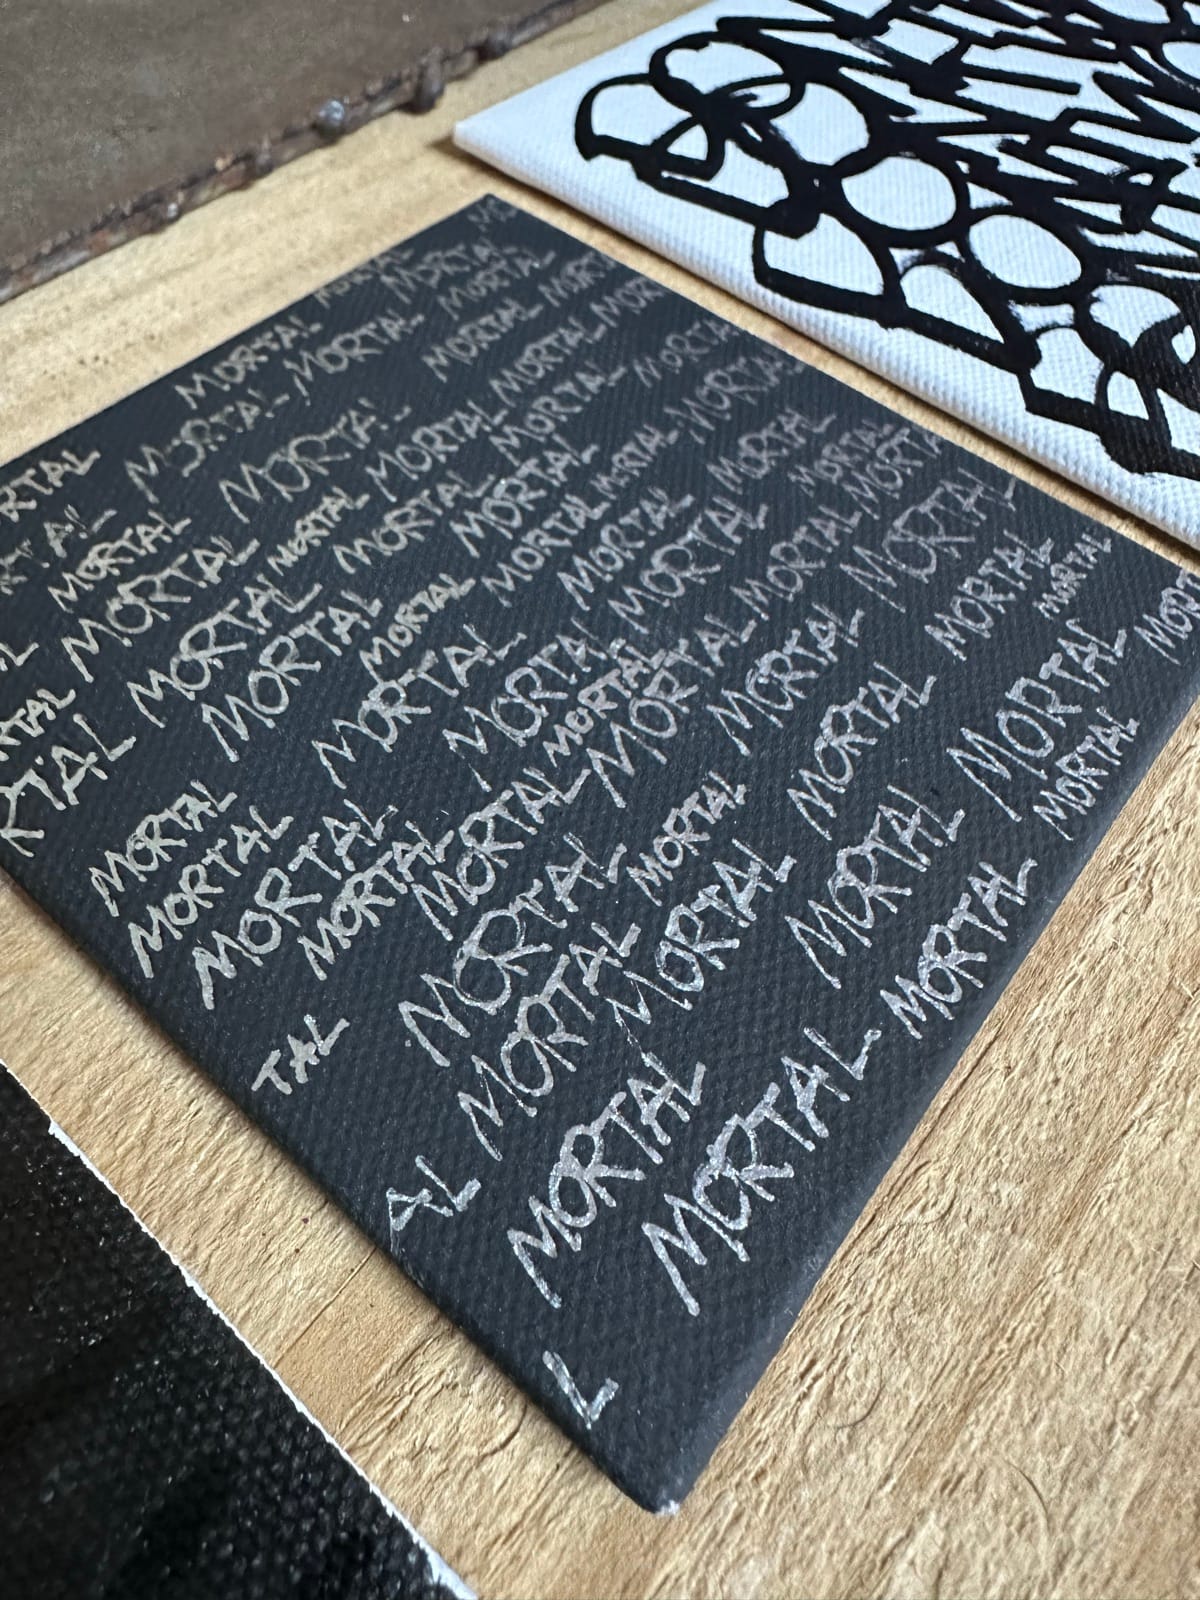 MORTAL
MORTAL MORTAL
RTAL MORTAL MORTAL MORTAL
TAL MORTAL MORTAL MORT
MORTAL MORTAL MORTAL MORT
L MORTAL MORTAL MORTAL MORTAL MORTAL
RTAL MORTAL MORTAL MORTAL MORTAL MORTAL
RTAL MORTAL MORTAL MORTAL MORTAL
MORTAL MORTAL MORTAL MORTAL MORTAL
MORTAL MORTAL MORTAL MORTAL MORTA
MORTAL MORTAL MORTAL MORTAL MORTAL
MORTAL MORTAL MORTAL MORTAL MORTAL
TAL MORTAL MORTAL MORTAL MORTAL
MORTAL MORTAL MORTAL MORTAL MORT
AL MORTAL MORTAL MORTAL
MORTAL MORTAL MORTAL
MORTAL MORTAL
L